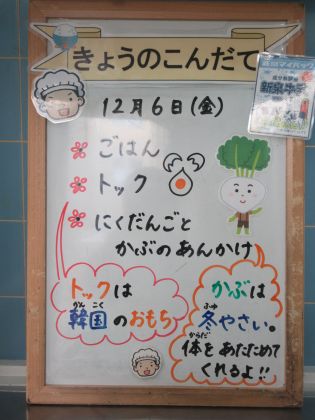 きょうのこんだて
12月6日(金)
ごはん
トック
にくだんごと
かぶのあんかけ
トックは
韓国のおもち
かん こく
かぶは
冬やさい。
ふゆ
体をあたためて
からだ
くれるよ!!